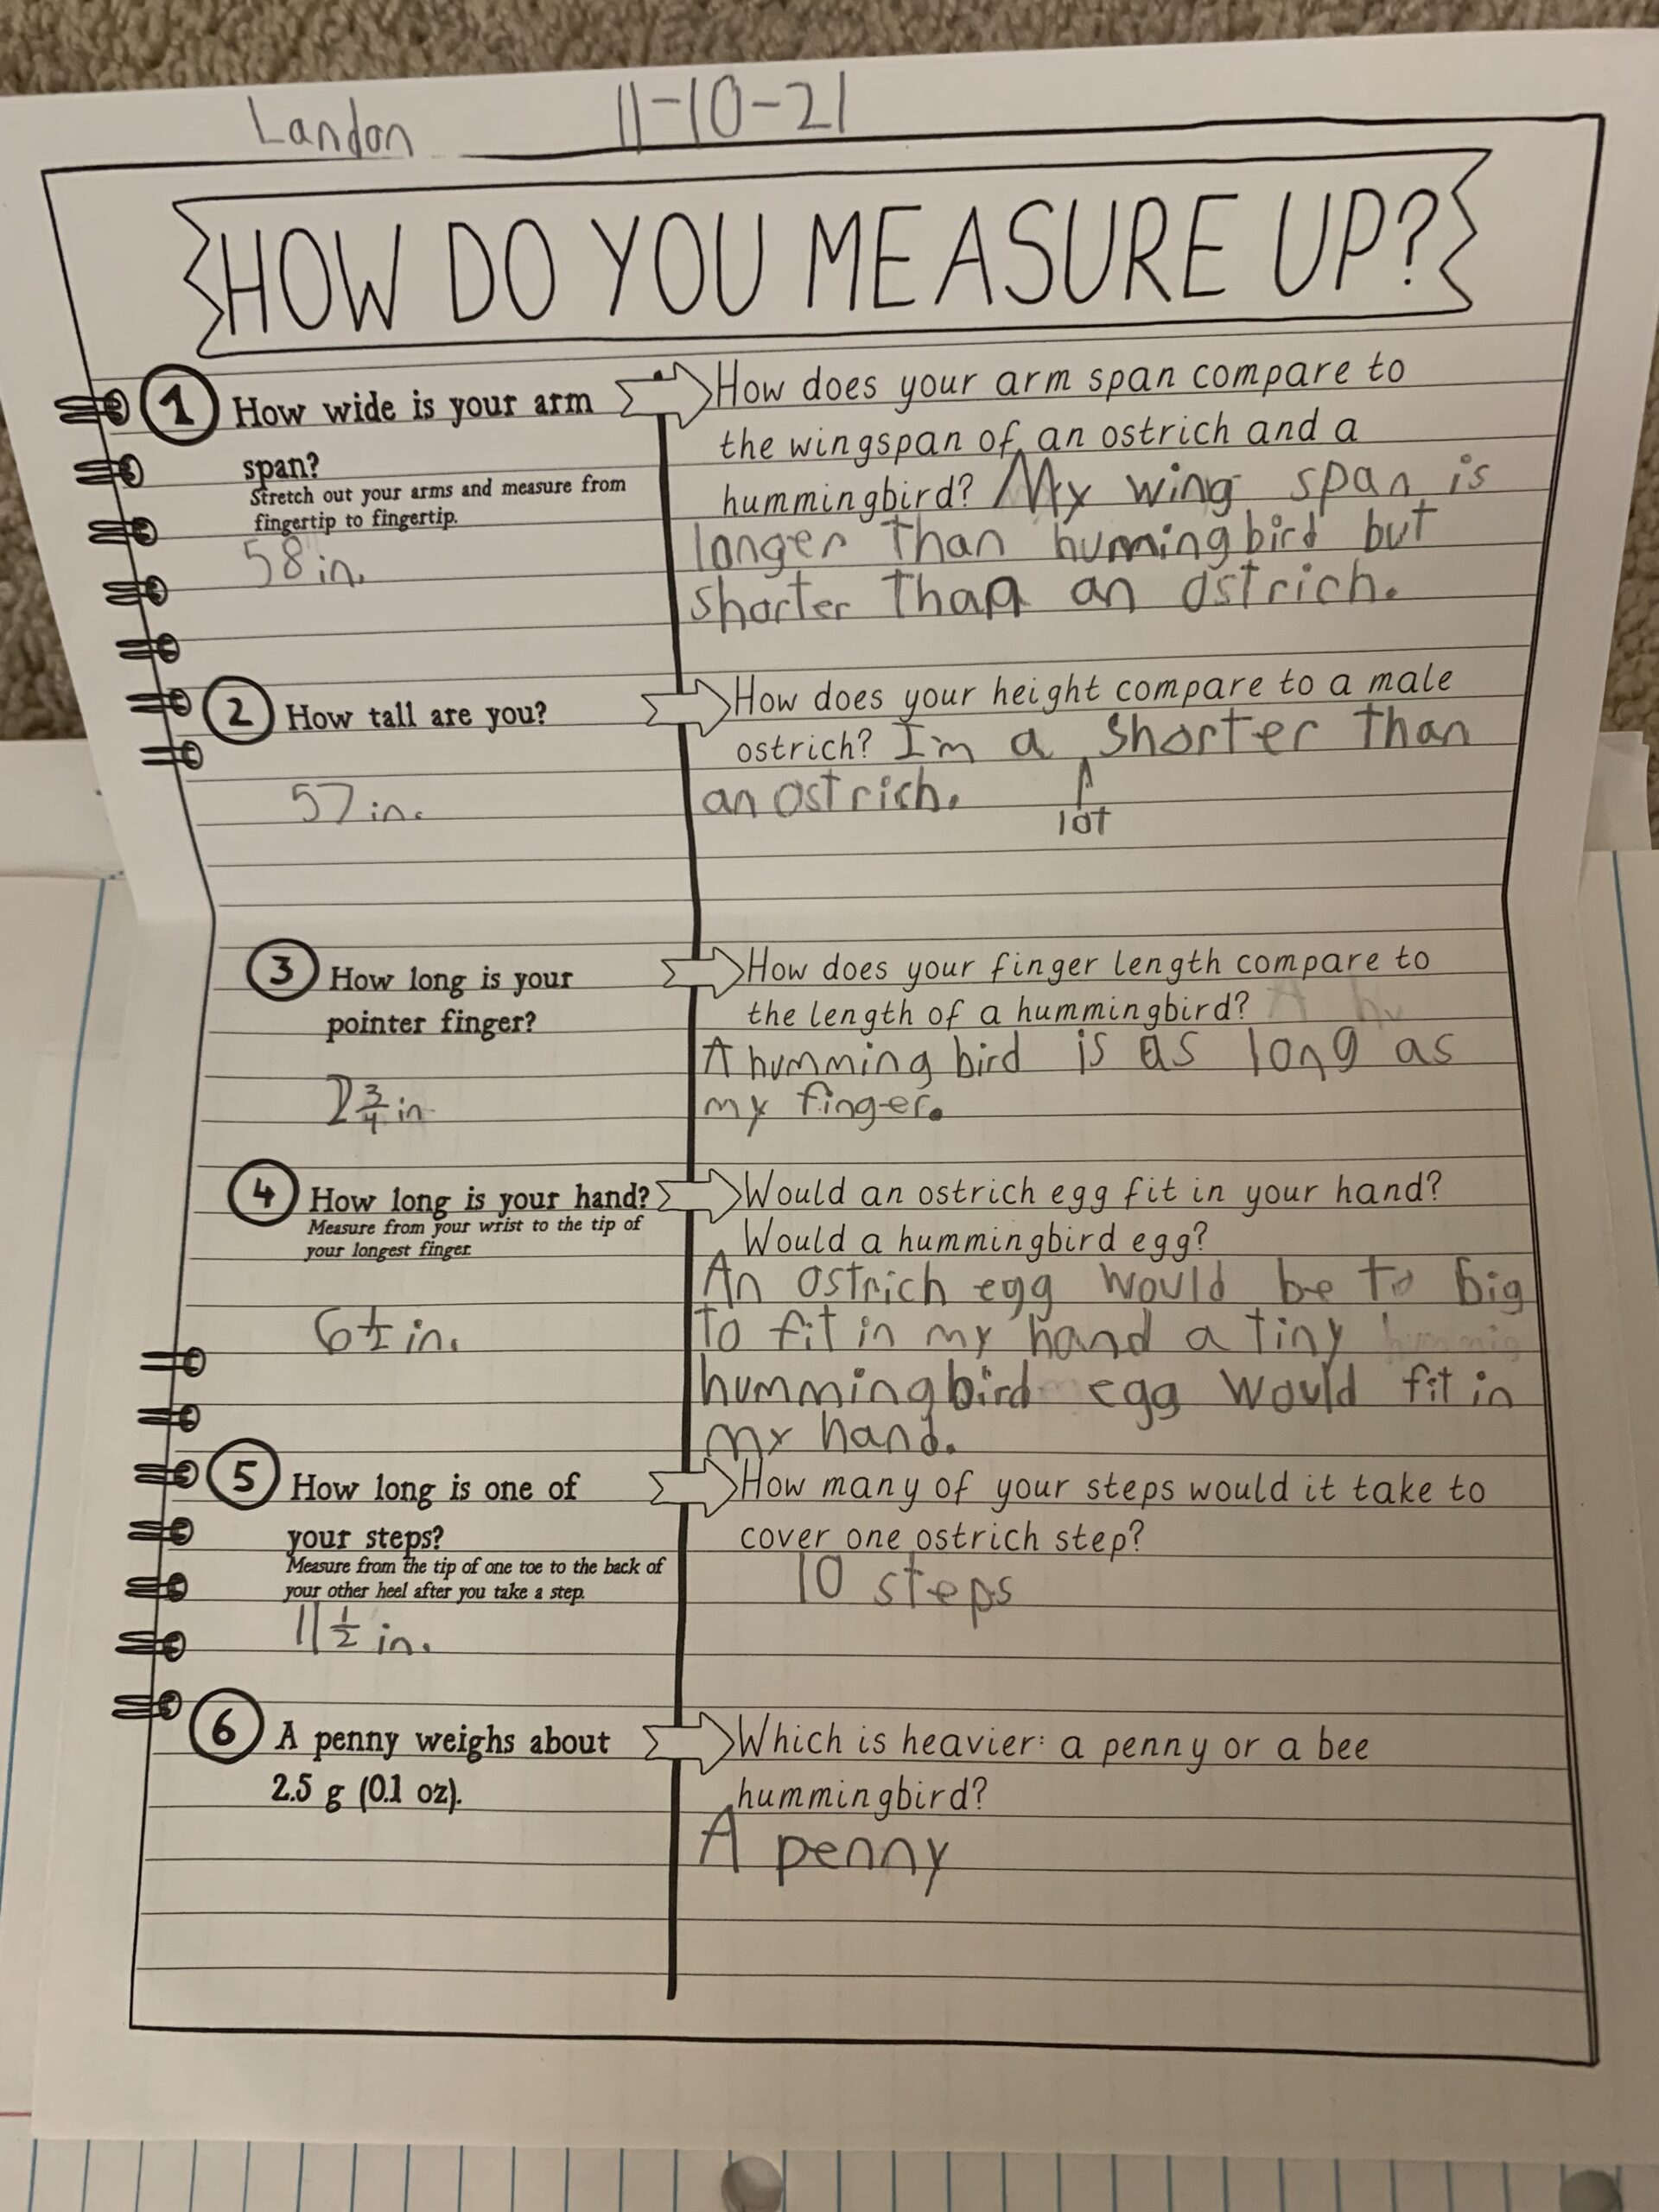 Landon 11-10-21
HOW DO YOU MEASURE UP?
1 How wide is your arm
span?
Stretch out your arms and measure from
fingertip to fingertip.
58 in.
How does your arm span compare to
the wingspan of an ostrich and a
hummingbird? My wing span is
longer than humming bird but
shorter than an ostrich.
2 How tall are you?
57 in.
How does your height compare to a male
ostrich? I'm a shorter than
an ostrich.
lot
3 How long is your
pointer finger?
2 3/4 in
How does your finger length compare to
the length of a hummingbird?
A humming bird is as long as
my finger.
4 How long is your hand?
Measure from your wrist to the tip of
your longest finger.
6 1/2 in.
Would an ostrich egg fit in your hand?
Would a hummingbird egg?
An ostrich egg would be to big
to fit in my hand a tiny
humming bird egg would fit in
my hand.
5 How long is one of
your steps?
Measure from the tip of one toe to the back of
your other heel after you take a step.
11 1/2 in.
How many of your steps would it take to
cover one ostrich step?
10 steps
6 A penny weighs about
2.5 g (0.1 oz).
Which is heavier: a penny or a bee
hummingbird?
A penny